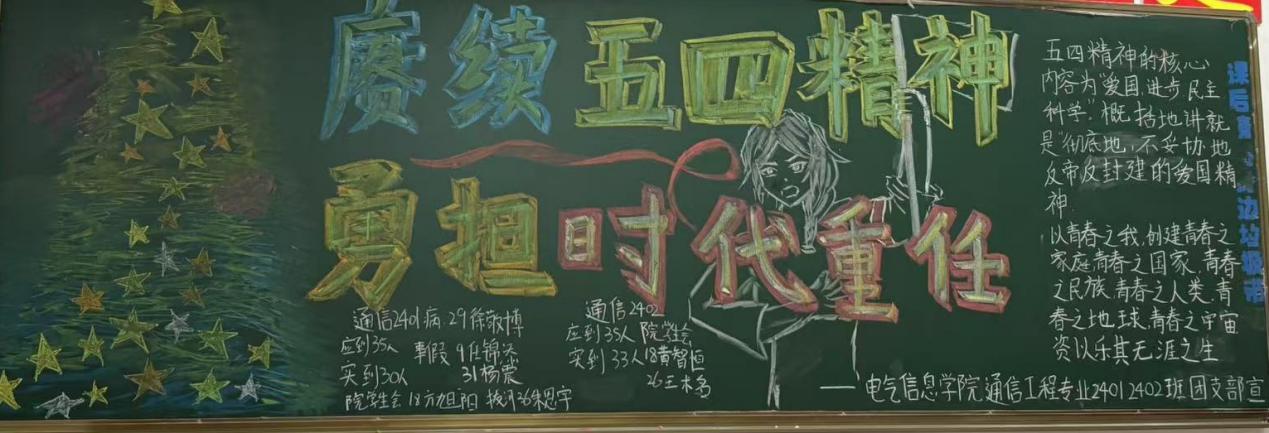 赓续五四精神
勇担时代重任
五四精神的核心
内容为"爱国、进步、民主
科学",概括地讲就
是"彻底地,不妥协地
反帝反封建的爱国精
神.
以青春之我,创建青春之
家庭,青春之国家,青春
之民族,青春之人类,青
春之地球,青春之宇宙
资以乐其无涯之生
——电气信息学院通信工程专业2401 2402班团支部宣
课后
边垃圾带
通信2401 病:29徐敬博
应到35人 事假 9任锦
实到30人 31杨震
院学生会 18方旭阳 拔河36朱恩宇
通信2402
应到35人 院学生会
实到33人 18黄智恒
26王木